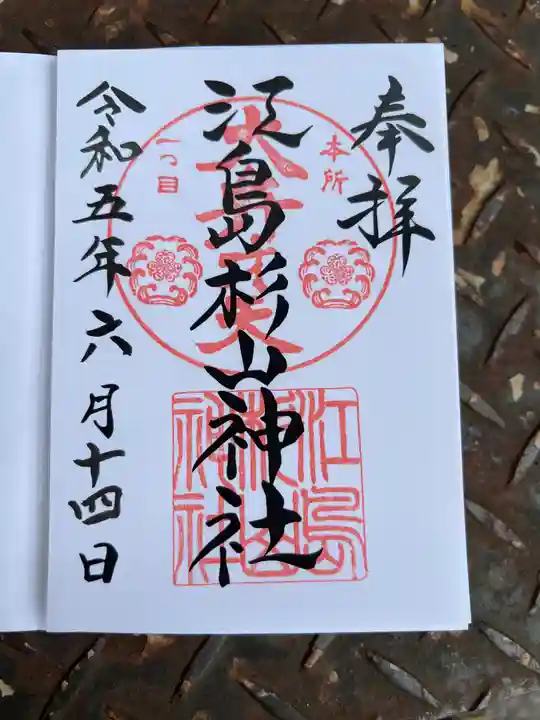 奉拝
本所
一つ目
江島杉山神社
江島
杉山
神社
令和五年六月十四日